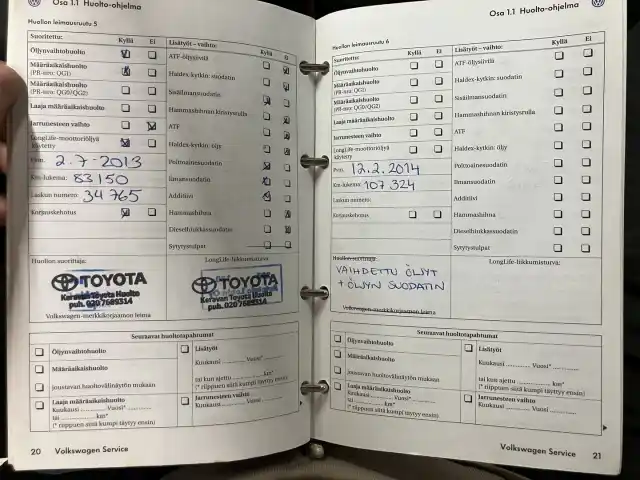 Osa 1.1 Huolto-ohjelma
Huollon leimausruutu 5
Suoritettu: Kyllä Ei
Öljynvaihtohuolto
Määräaikaishuolto
(PR-nro: QG1)
Määräaikaishuolto
(PR-nro: QG0/QG2)
Laaja määräaikaishuolto
Jarrunesteen vaihto
LongLife-moottoriöljyä
käytetty
Pvm. 2.7-2013
Km-lukema: 83150
Laskun numero: 34765
Korjauskehotus
Lisätyöt – vaihto: Kyllä Ei
ATF-öljysiivilä
Haldex-kytkin: suodatin
Sisäilmansuodatin
Hammashihnan kiristysrulla
ATF
Haldex-kytkin: öljy
Polttoainesuodatin
Ilmansuodatin
Additiivi
Hammashihna
Dieselhiukkassuodatin
Sytytystulpat
Huollon suorittaja:
TOYOTA
Keravan Toyota Huolto
puh. 0207689314
Volkswagen-merkkikorjaamon leima
LongLife-liikkumisturva
TOYOTA
Keravan Toyota Huolto
puh. 0207689314
Seuraavat huoltotapahtumat
Öljynvaihtohuolto
Määräaikaishuolto
joustavan huoltovälinäytön mukaan
Laaja määräaikaishuolto
Kuukausi ............ Vuosi* ............
tai ............ km*
(* riippuen siitä kumpi täyttyy ensin)
Lisätyöt
Kuukausi ............ Vuosi* ............
tai kun ajettu ............ km*
(* riippuen siitä kumpi täyttyy ensin)
Jarrunesteen vaihto
Kuukausi ............ Vuosi ............
20 Volkswagen Service
Osa 1.1 Huolto-ohjelma
Huollon leimausruutu 6
Suoritettu: Kyllä Ei
Öljynvaihtohuolto
Määräaikaishuolto
(PR-nro: QG1)
Määräaikaishuolto
(PR-nro: QG0/QG2)
Laaja määräaikaishuolto
Jarrunesteen vaihto
LongLife-moottoriöljyä
käytetty
Pvm. 12.2.2014
Km-lukema: 107324
Laskun numero:
Korjauskehotus
Lisätyöt – vaihto: Kyllä Ei
ATF-öljysiivilä
Haldex-kytkin: suodatin
Sisäilmansuodatin
Hammashihnan kiristysrulla
ATF
Haldex-kytkin: öljy
Polttoainesuodatin
Ilmansuodatin
Additiivi
Hammashihna
Dieselhiukkassuodatin
Sytytystulpat
Huollon suorittaja:
VAIHDETTU ÖLJYT
+ ÖLJYN SUODATIN
Volkswagen-merkkikorjaamon leima
LongLife-liikkumisturva:
Seuraavat huoltotapahtumat
Öljynvaihtohuolto
Määräaikaishuolto
joustavan huoltovälinäytön mukaan
Laaja määräaikaishuolto
Kuukausi ............ Vuosi* ............
tai ............ km*
(* riippuen siitä kumpi täyttyy ensin)
Lisätyöt
Kuukausi ............ Vuosi* ............
tai kun ajettu ............ km*
(* riippuen siitä kumpi täyttyy ensin)
Jarrunesteen vaihto
Kuukausi ............ Vuosi ............
Volkswagen Service 21